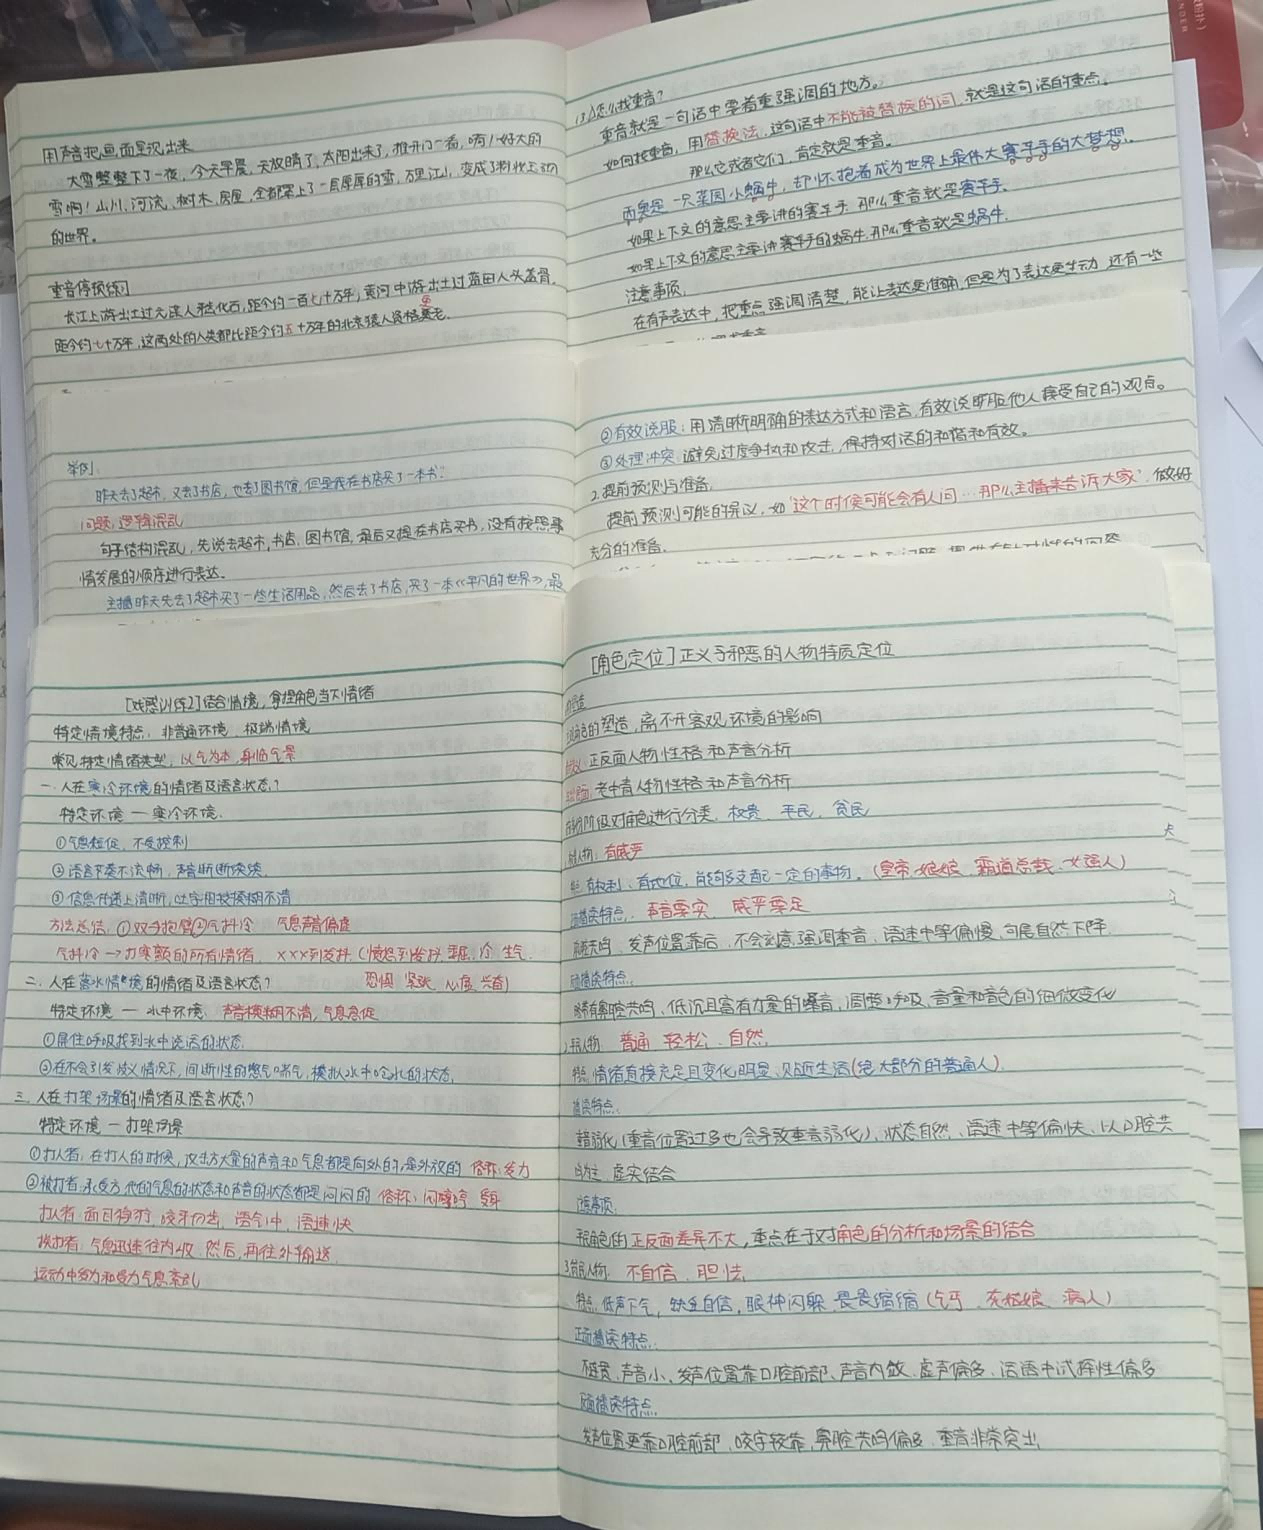 用声音把画面呈现出来
大雪整整下了一夜，今天早晨，天放晴了，太阳出来了，推开门一看，嗬！好大的
雪啊！山川、河流、树木、房屋，全都罩上了一层厚厚的雪，万里江山，变成了粉妆玉砌
的世界。
重音停顿练习
长江上游出土过元谋人牙齿化石，距今约一百七十万年，黄河中游出土过蓝田人头盖骨，
距今约七十万年，这两处的人类都比距今约五十万年的北京猿人资格更老。
(3)怎么找重音？
重音就是一句话中需着重强调的地方。
如何找重音，用替换法，这句话中不能被替换的词，就是这句话的重点，
那么它或者它们，肯定就是重音。
西奥是一只菜园小蜗牛，却怀抱着成为世界上最伟大赛车手的大梦想。
如果上下文的意思主要讲的赛车手，那么重音就是赛车手。
如果上下文的意思主要讲赛车手的蜗牛，那么重音就是蜗牛。
注意事项，
在有声表达中，把重点强调清楚，能让表达更准确，但是为了表达更生动，还有一些
举例：
昨天去了超市，又去了书店，也去了图书馆，但是我在书店买了一本书。
问题：逻辑混乱
句子结构混乱，先说去超市，书店，图书馆，最后又提在书店买书，没有按照事
情发展的顺序进行表达。
主播昨天先去了超市买了一些生活用品，然后去了书店，买了一本《平凡的世界》，最
②有效说服：用清晰明确的表达方式和语言，有效说服他人接受自己的观点。
③处理冲突：避免过度争执和攻击，保持对话的和谐和有效。
2.提前预测与准备，
提前预测可能的异议，如“这个时候可能会有人问…那么主播来告诉大家”，做好
充分的准备。
[戏感训练2]结合情境，拿捏角色当下情绪
特定情境特点：非普通环境、极端情境
常见特定情绪类型，以气为本，身临气景
一.人在寒冷环境的情绪及语言状态？
特定环境——寒冷环境，
①气息短促，不受控制
②语言节奏不流畅，声音断断续续，
③信息传递上清晰，吐字相较模糊不清
方法总结：①双手抱臂②气抖冷 气息声音偏虚
气抖冷→打寒颤的所有情绪，×××到发抖（愤怒到发抖 委屈、冷 生气
恐惧 紧张 心虚 兴奋）
二、人在落水情境的情绪及语言状态？
特定环境——水中环境：声音模糊不清，气息急促
①屏住呼吸找到水中说话的状态，
②在不会引发歧义情况下，间断性的憋气喘气，模拟水中呛水的状态，
三、人在打架场景的情绪及语言状态？
特定环境——打架场景
①打人者：在打人的时候，攻击方大量的声音和气息都是向外的，是外放的 俗称：发力
②被打者：承受方他的气息的状态和声音的状态都是闷闷的 俗称：闷哼哼 受身
打人者：面目狰狞，咬牙切齿，语气冲，语速快
挨打者：气息迅速往内收，然后，再往外输送，
运动中发力和受力气息紊乱
[角色定位]正义与邪恶的人物特质定位
角色的塑造，离不开客观环境的影响
正反面人物性格和声音分析
老中青人物性格和声音分析
阶级对角色进行分类，权贵 平民 贫民
人物：有威严
有权利、有地位，能够支配一定的事物。（皇帝、娘娘、霸道总裁、女强人）
播读特点：声音要实，威严要足
共鸣、发声位置靠后，不会刻意强调重音，语速中等偏慢，句尾自然下降
播读特点：
稀有鼻腔共鸣，低沉且富有力量的嗓音，调整呼吸、音量和音色的细微变化
人物：普通 轻松、自然，
特点：情绪直接充足且变化明显、贴近生活（绝大部分的普通人）
播读特点：
弱化（重音位置过多也会导致重音弱化）、状态自然、语速中等偏快、以口腔共
鸣为主、虚实结合
注意事项：
平民角色的正反面差异不大，重点在于对角色的分析和场景的结合
3.贫民人物：不自信、胆怯，
特点：低声下气，缺乏自信，眼神闪躲、畏畏缩缩（乞丐、灰姑娘、病人）
正面播读特点：
声音小、发声位置靠口腔前部、声音内敛、虚声偏多、话语中试探性偏多
反面播读特点，
发声位置更靠口腔前部、咬字较靠，鼻腔共鸣偏多、重音非常突出，